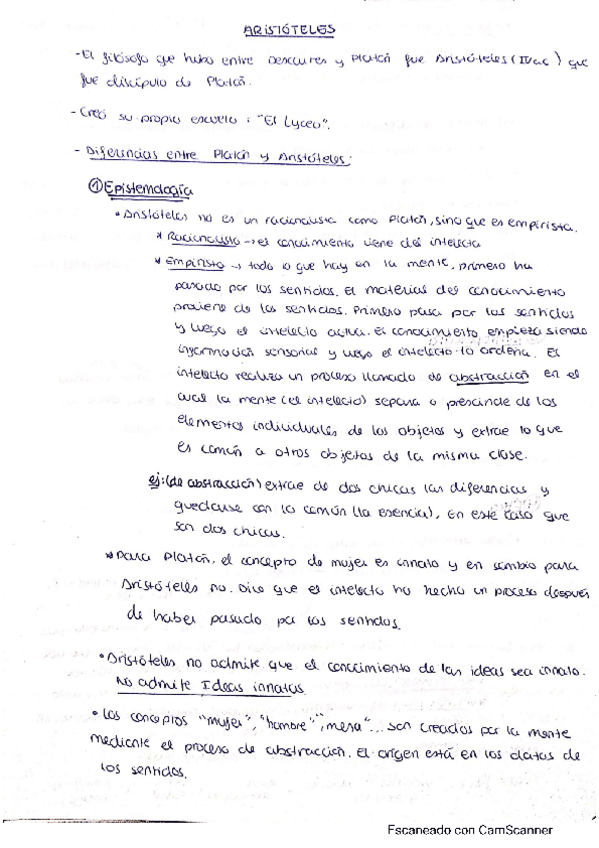 ARISTÓTELES
-El filósofo que hubo entre Descartes y Platón fue Aristóteles (IVac) que
fue discípulo de Platón.
-Creó su propia escuela: "El Lyceo".
- Diferencias entre Platón y Aristóteles:
① Epistemología
• Aristóteles no es un racionalista como Platón, sino que es empirista.
* Racionalista → el conocimiento viene del intelecto
* Empirista → todo lo que hay en la mente, primero ha
pasado por los sentidos. El material del conocimiento
proviene de los sentidos. Primero pasa por los sentidos
y luego el intelecto actúa. El conocimiento empieza siendo
información sensorial y luego el intelecto lo ordena. El
intelecto realiza un proceso llamado de abstracción en el
cual la mente (el intelecto) separa o prescinde de los
elementos individuales de los objetos y extrae lo que
es común a otros objetos de la misma clase.
ej: (de abstracción) extrae de dos chicas las diferencias y
quedarse con lo común (la esencia), en este caso que
son dos chicas.
* Para Platón, el concepto de mujer es innato y en cambio para
Aristóteles no. Dice que el intelecto ha hecho un proceso después
de haber pasado por los sentidos.
• Aristóteles no admite que el conocimiento de las ideas sea innato.
No admite Ideas innatas.
• Los conceptos "mujer", "hombre", "mesa"... son creados por la mente
mediante el proceso de abstracción. El origen está en los datos de
los sentidos.
Escaneado con CamScanner